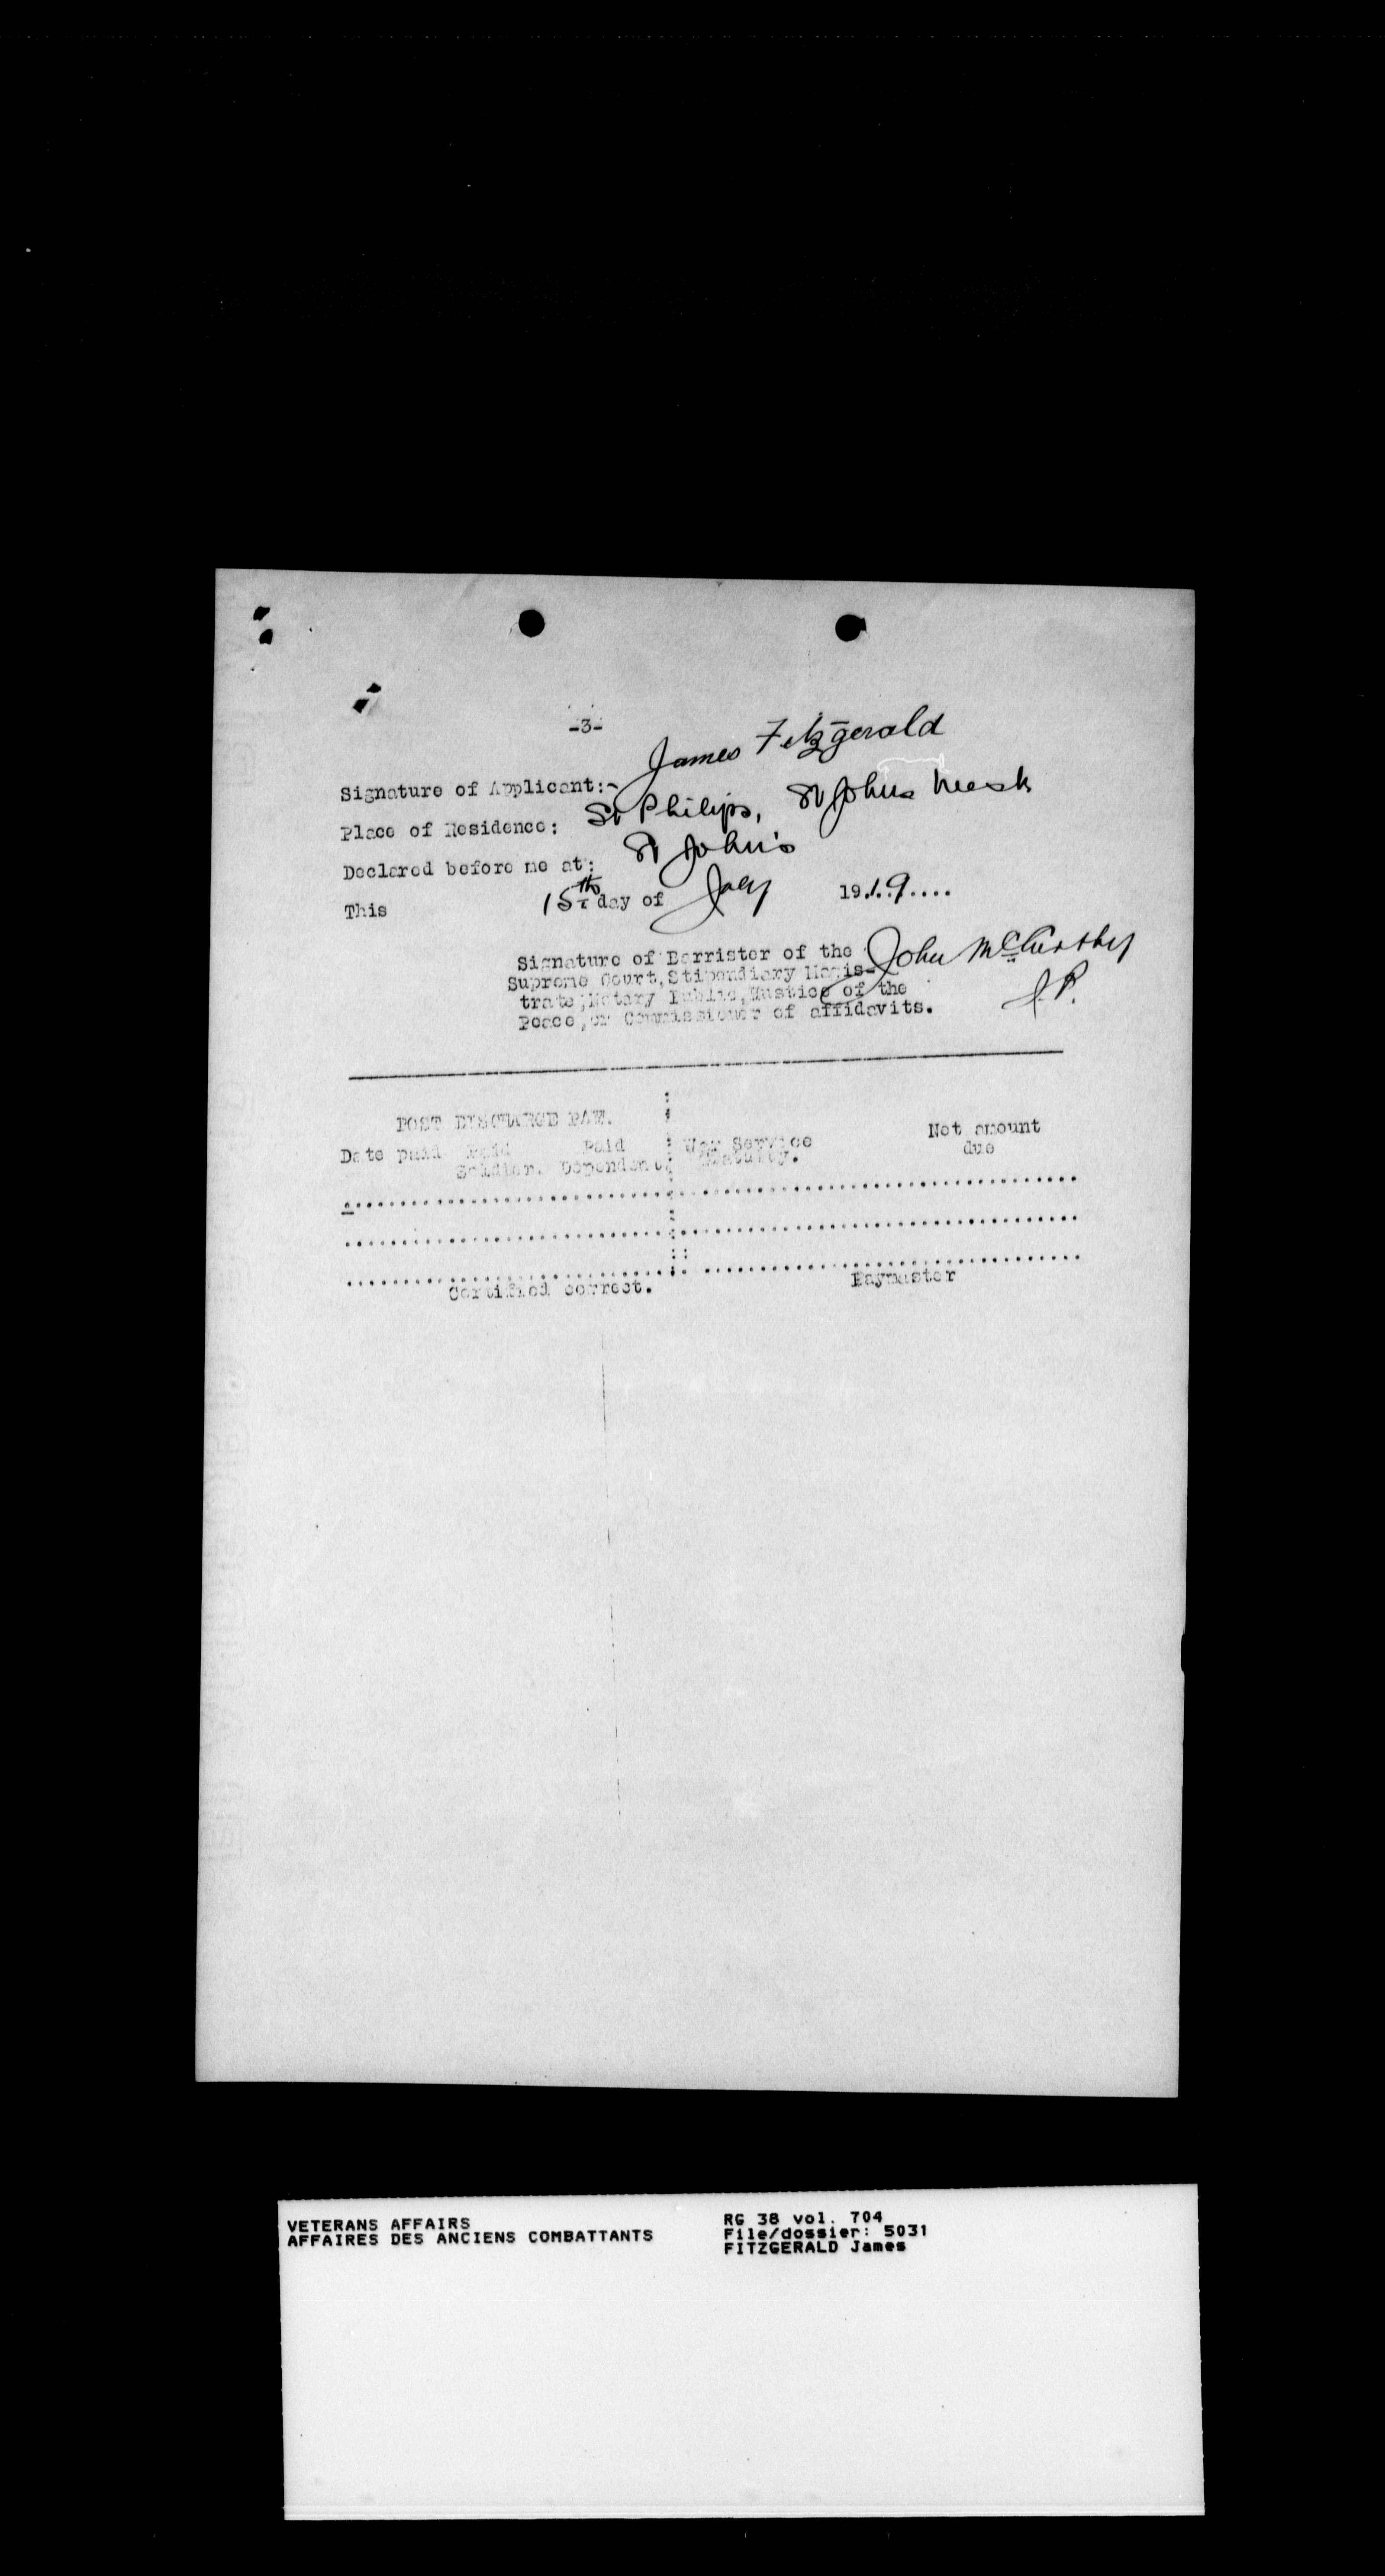 -3-
Signature of Applicant:- James Fitzgerald
Place of Residence: St Philips, St Johns West
Declared before me at: St John's
This 15th day of July 1919....
Signature of Barrister of the John McCarthy
Supreme Court, Stipendiary Magis- J.P.
trate, Notary Public, Justice of the
Peace, or Commissioner of affidavits.
POST DISCHARGE PAY.
Date paid Paid Paid War Service Net amount
Soldier. Dependent. Gratuity. due
Certified correct. Paymaster
VETERANS AFFAIRS RG 38 vol. 704
AFFAIRES DES ANCIENS COMBATTANTS File/dossier: 5031
FITZGERALD James